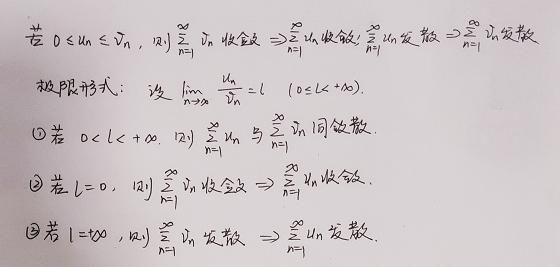 若 0≤uₙ≤vₙ, 则 ∑_{n=1}^{∞} vₙ 收敛 ⇒ ∑_{n=1}^{∞} uₙ 收敛; ∑_{n=1}^{∞} uₙ 发散 ⇒ ∑_{n=1}^{∞} vₙ 发散
极限形式: 设 lim_{n→∞} uₙ/vₙ = l (0≤l<+∞).
①若 0<l<+∞. 则 ∑_{n=1}^{∞} uₙ 与 ∑_{n=1}^{∞} vₙ 同敛散.
②若 l=0, 则 ∑_{n=1}^{∞} vₙ 收敛 ⇒ ∑_{n=1}^{∞} uₙ 收敛.
③若 l=+∞, 则 ∑_{n=1}^{∞} vₙ 发散 ⇒ ∑_{n=1}^{∞} uₙ 发散.